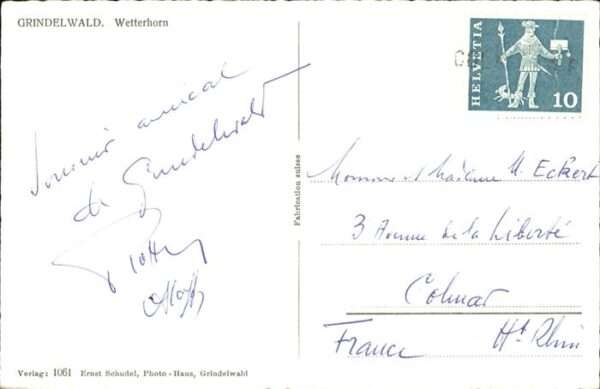 GRINDELWALD. Wetterhorn
HELVETIA
10
Souvenir amical
de Grindelwald
Fabrication suisse
Monsieur et Madame M. Eckert
3 Avenue de la Liberté
Colmar
France Ht Rhin
Verlag: 1061 Ernst Schudel, Photo-Haus, Grindelwald